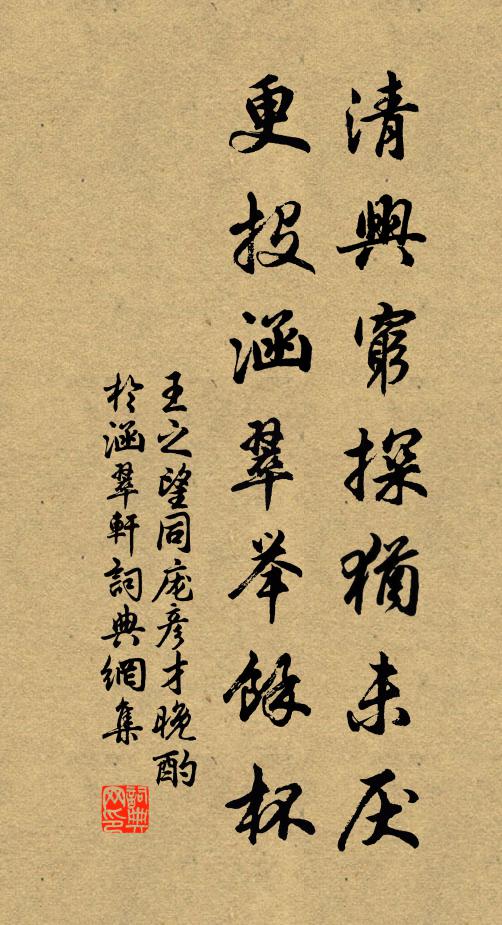 清興窮探猶未厌
更投涵翠举餘杯
王之望同庞彦才晚酌
於涵翠軒詞典網集
詞典网印